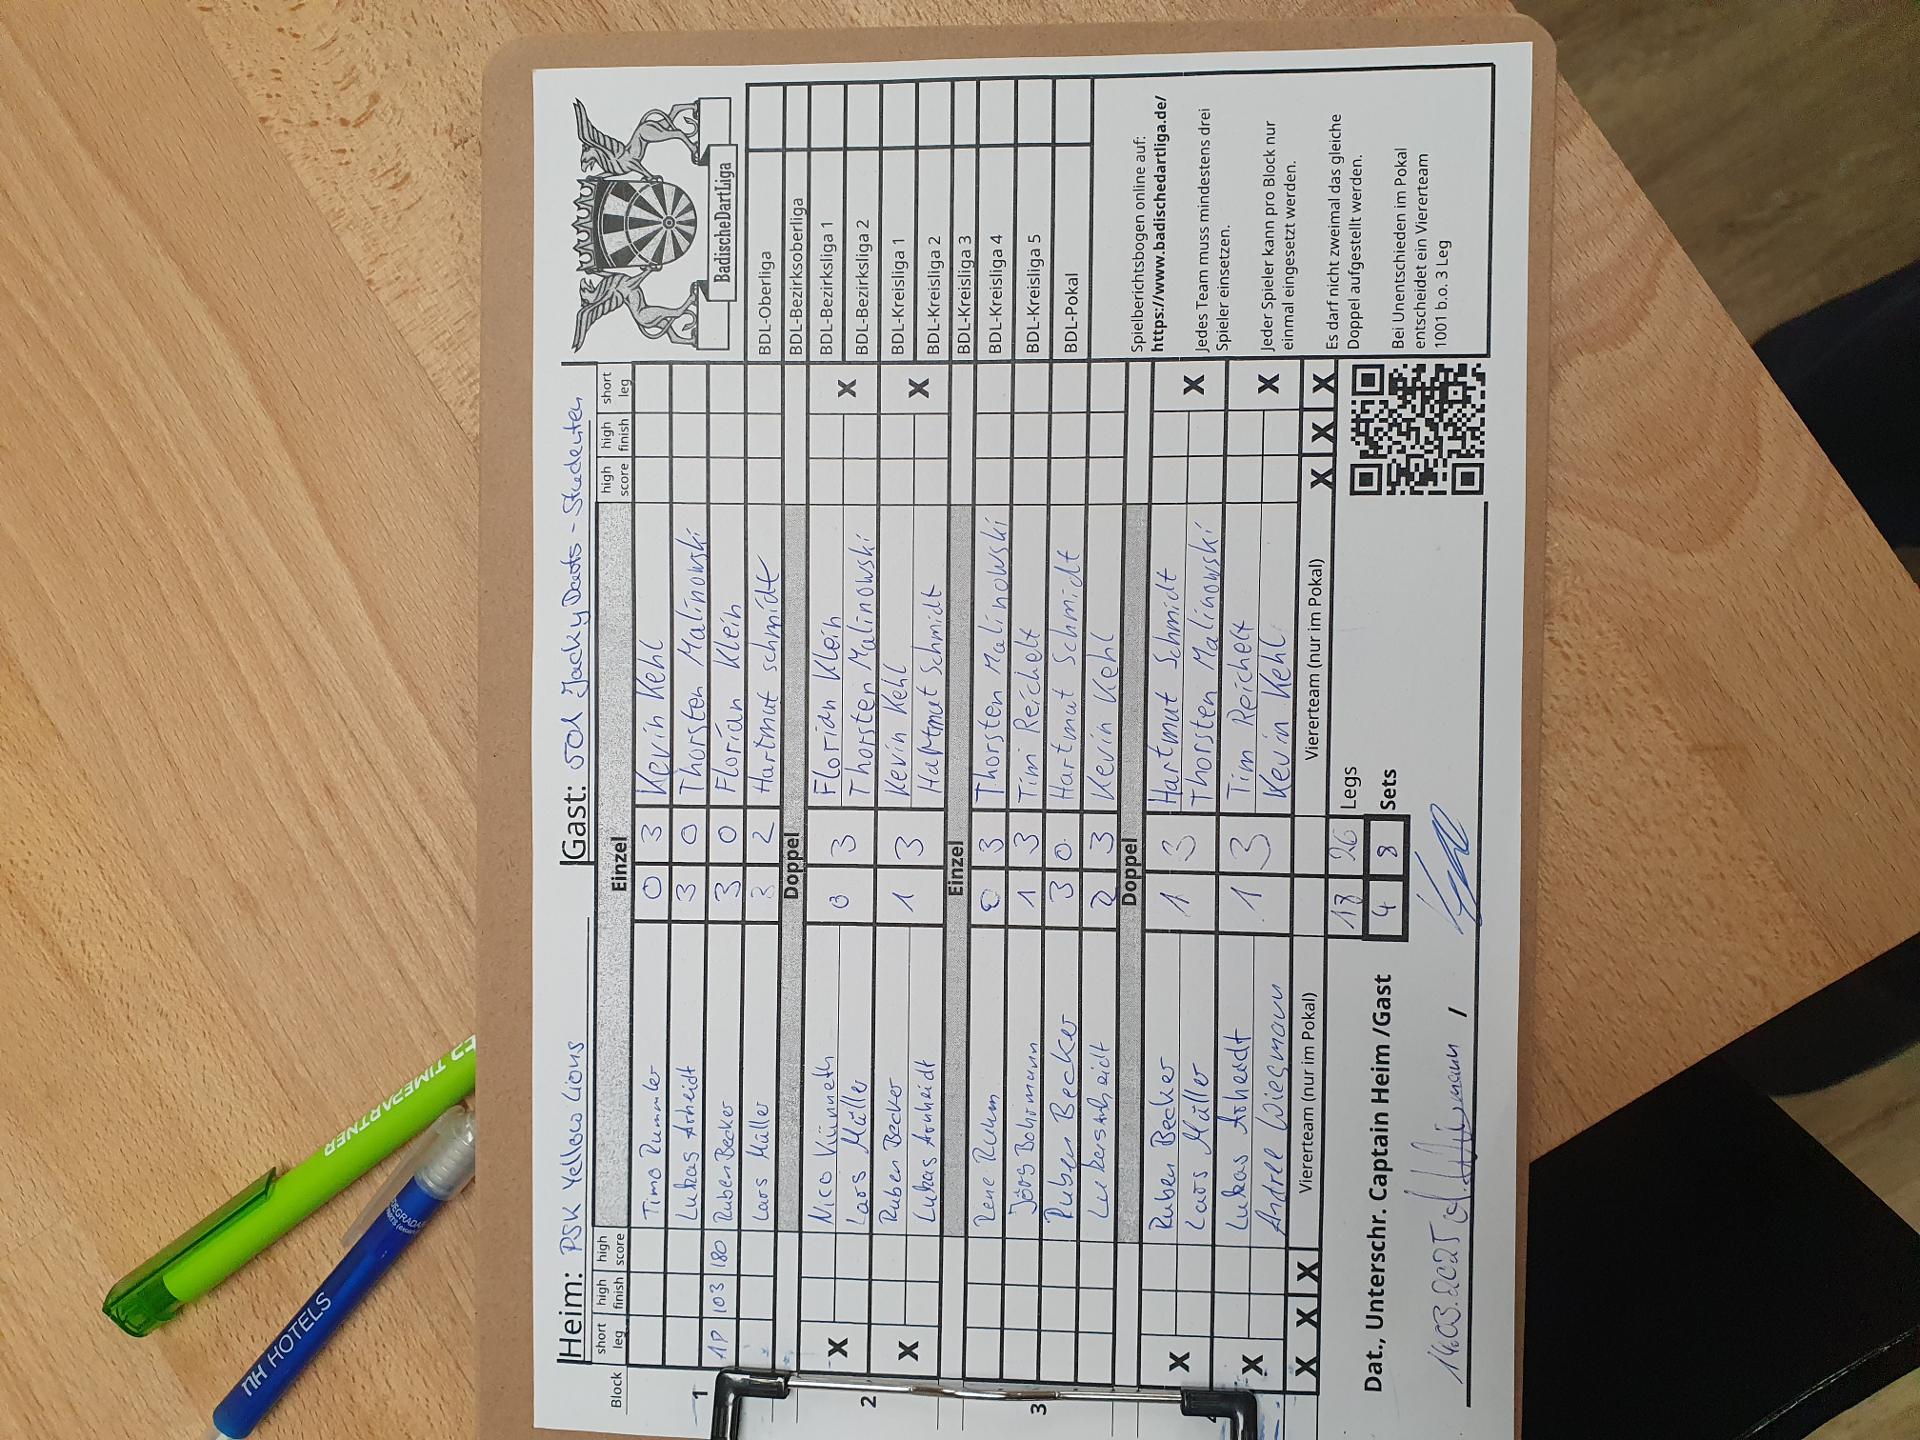 Heim: PSK Yellow Lions Gast: 501 Jacky Darts - Studenten
BadischeDartLiga
Block short leg high finish high score Einzel high score high finish short leg
1
Timo Rummler 0 3 Kevin Kehl
Lukas Arheidt 3 0 Thorsten Malinowski
103 180 Ruben Becker 3 0 Florian Klein
Lars Müller 3 2 Hartmut Schmidt
Doppel
2
X Nico Künneth 0 3 Florian Klein X
Lars Müller Thorsten Malinowski
X Ruben Becker 1 3 Kevin Kehl X
Lukas Arheidt Hartmut Schmidt
Einzel
3
Rene Ruhm 0 3 Thorsten Malinowski
Jörg Bohrmann 1 3 Tim Reichelt
Ruben Becker 3 0 Hartmut Schmidt
Lukas Arheidt 2 3 Kevin Kehl
Doppel
X Ruben Becker 1 3 Hartmut Schmidt X
Lars Müller Thorsten Malinowski
X Lukas Arheidt 1 3 Tim Reichelt X
Andree Wiegmann Kevin Kehl
X X X Viererteam (nur im Pokal) Viererteam (nur im Pokal) X X X
18 26 Legs
4 8 Sets
Dat., Unterschr. Captain Heim /Gast
14.03.2025 /
BDL-Oberliga
BDL-Bezirksoberliga
BDL-Bezirksliga 1
BDL-Bezirksliga 2
BDL-Kreisliga 1
BDL-Kreisliga 2
BDL-Kreisliga 3
BDL-Kreisliga 4
BDL-Kreisliga 5
BDL-Pokal
Spielberichtsbogen online auf:
https://www.badischedartliga.de/
Jedes Team muss mindestens drei
Spieler einsetzen.
Jeder Spieler kann pro Block nur
einmal eingesetzt werden.
Es darf nicht zweimal das gleiche
Doppel aufgestellt werden.
Bei Unentschieden im Pokal
entscheidet ein Viererteam
1001 b.o. 3 Leg
TIMEPARTNER
NH HOTELS